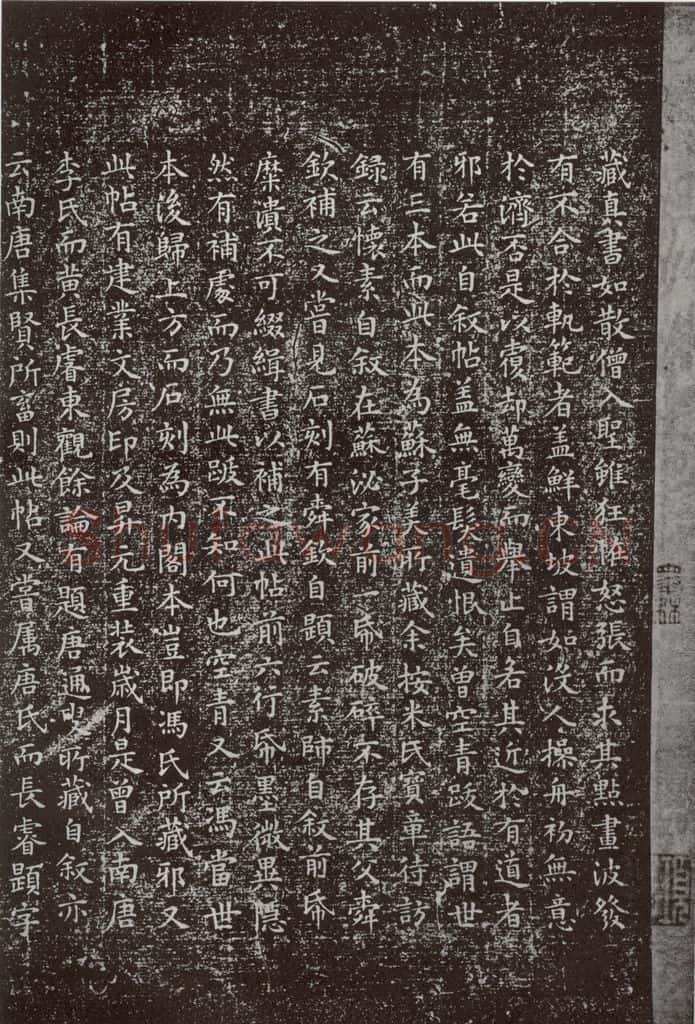 藏真書如散僧入聖雖狂怪怒張而求其點畫波發
有不合於軌範者盖鮮東坡謂如沒人操舟初無意
於濟否是以覆却萬變而舉止自若其近於有道者
邪若此自叙帖盖無毫髮遺恨矣曾空青跋語謂世
有三本而此本為蘇子美所藏余按米氏寶章待訪
録云懷素自叙在蘇泌家前一帋破碎不存其父舜
欽補之又嘗見石刻有舜欽自題云素師自叙前帋
糜潰不可綴緝書以補之此帖前六行帋墨微異隱
然有補處而乃無此跋不知何也空青又云馮當世
本後歸上方而石刻為内閣本豈即馮氏所藏邪又
此帖有建業文房印及昇元重装歳月是曾入南唐
李氏而黄長睿東觀餘論有題唐通叟所藏自叙亦
云南唐集賢所畜則此帖又嘗属唐氏而長睿題字
shufawang.CN